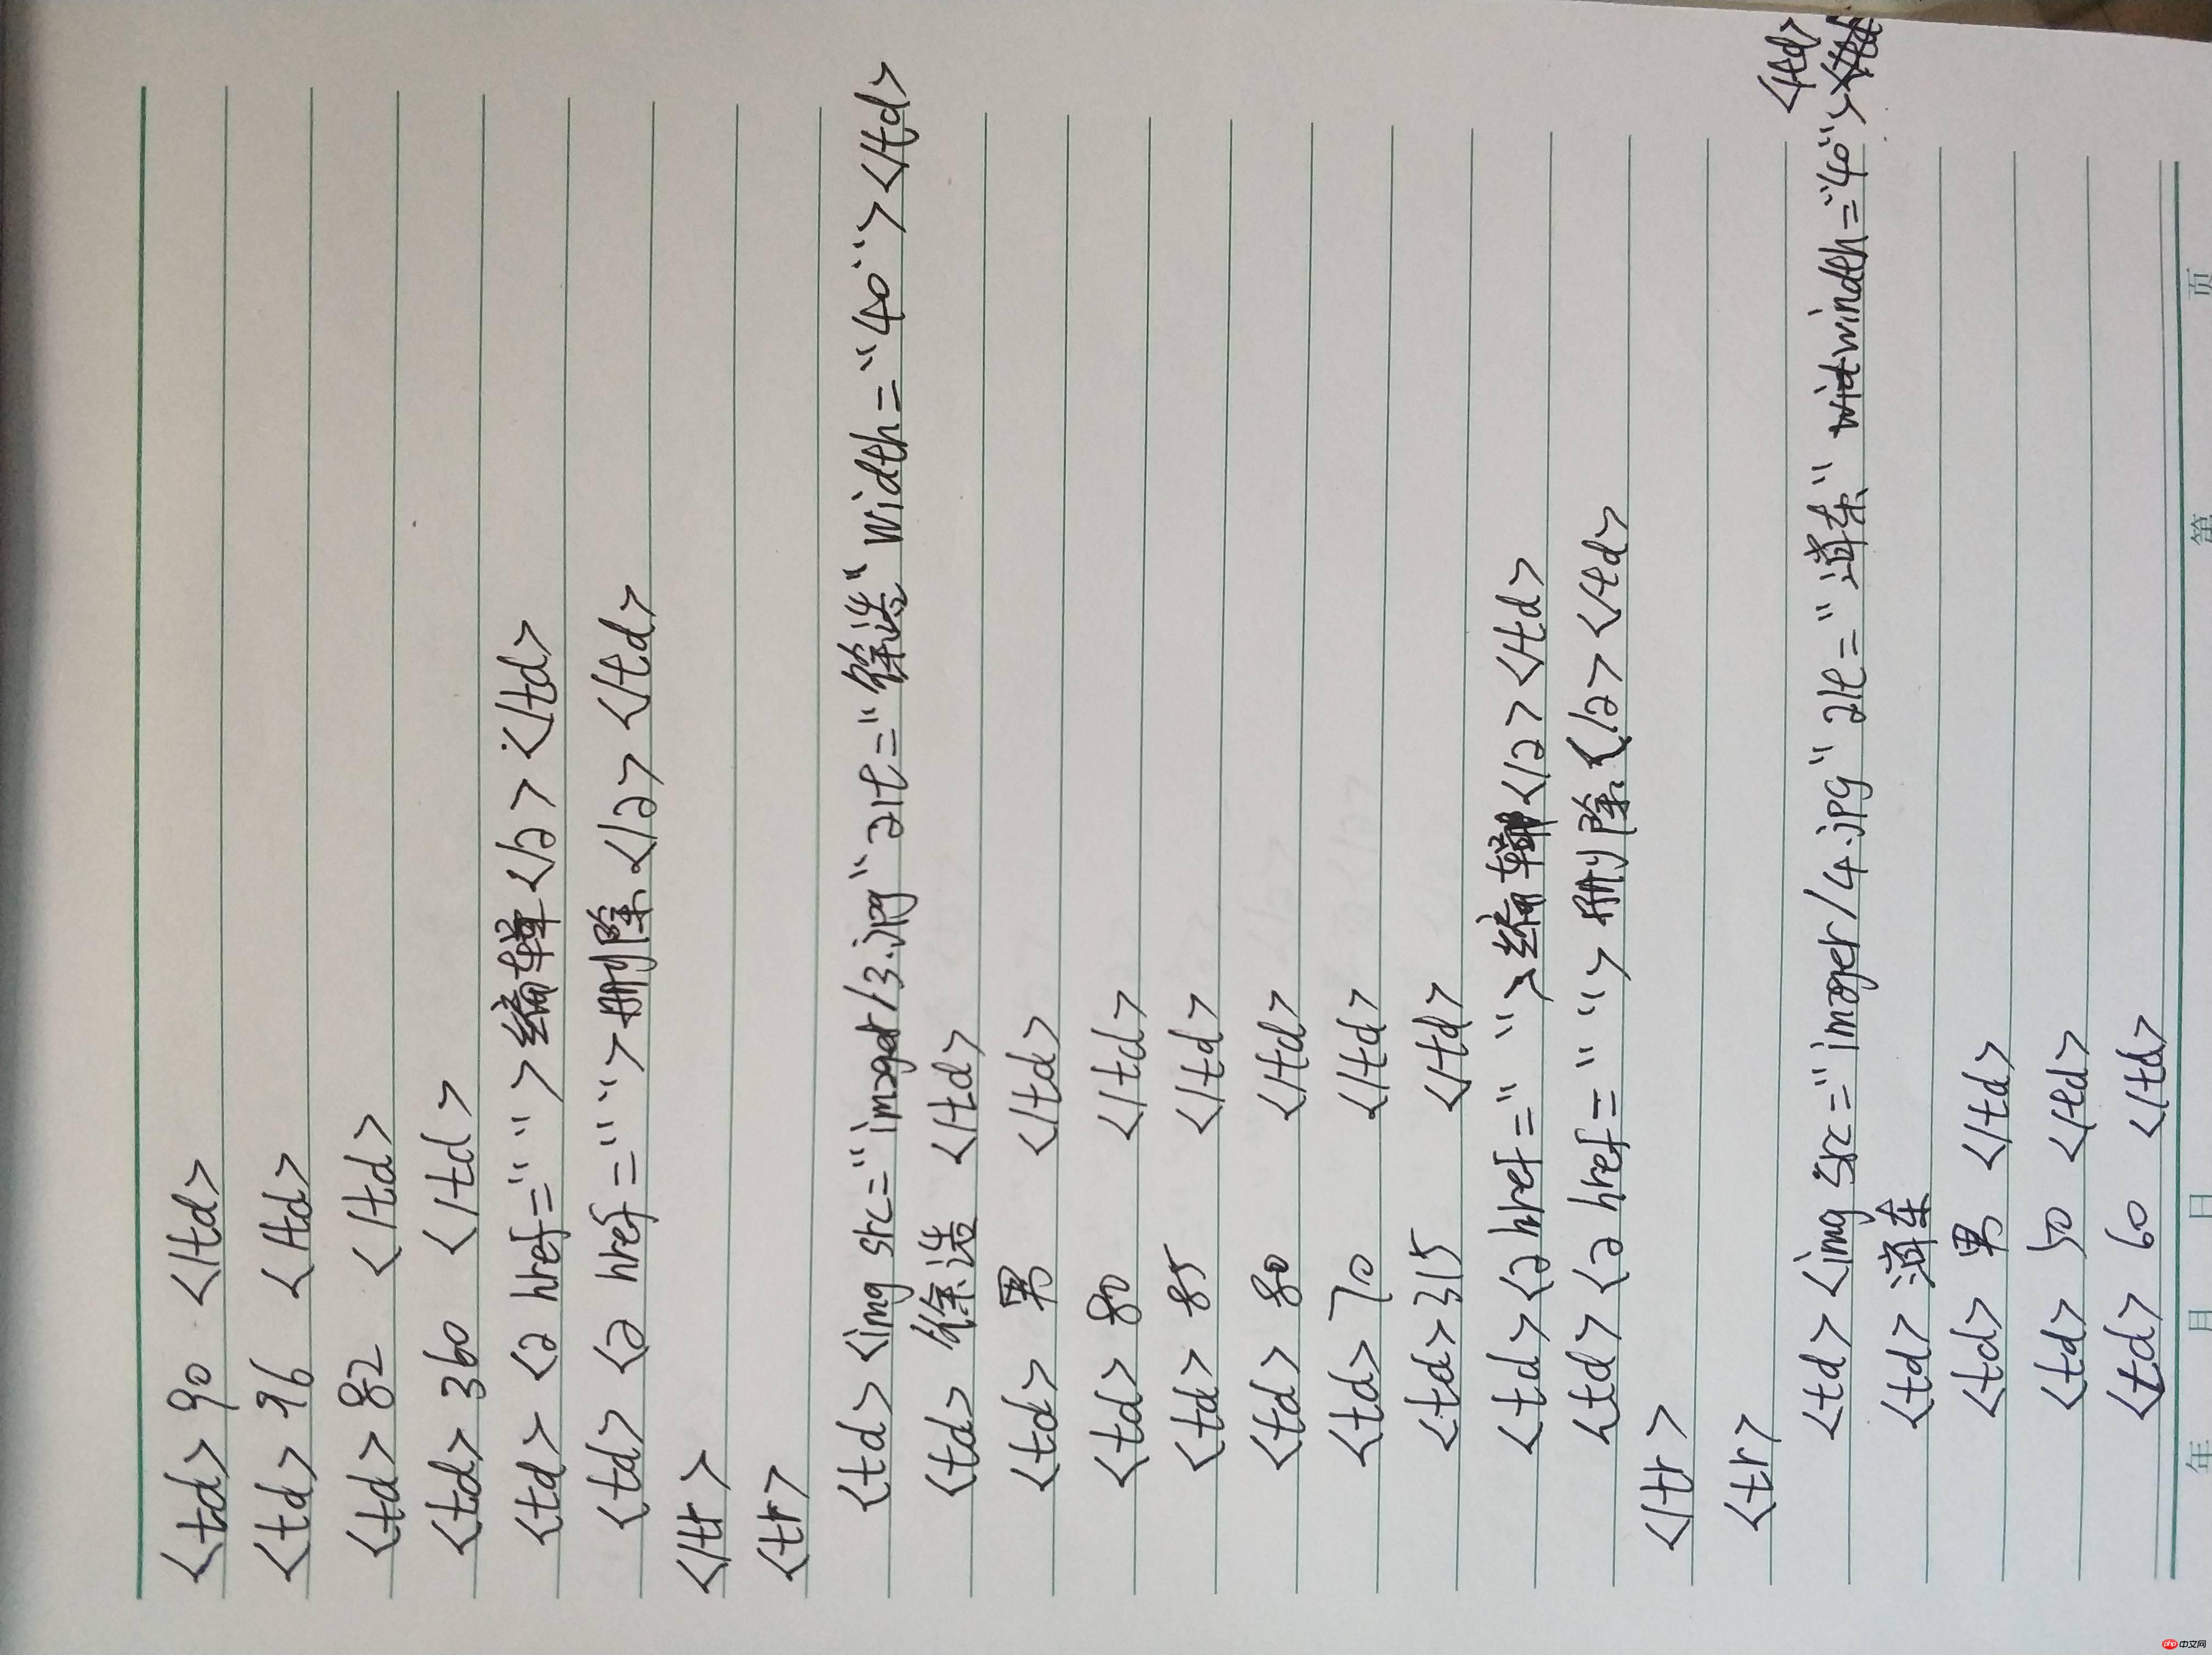 <td> 90 </td>
<td> 96 </td>
<td> 82 </td>
<td> 360 </td>
<td> <a href=" "> 编辑 </a> </td>
<td> <a href=" "> 删除 </a> </td>
</tr>
<tr>
<td> <img src="imager/3.jpg" alt="徐浩" width="40"> </td>
<td> 徐浩 </td>
<td> 男 </td>
<td> 80 </td>
<td> 85 </td>
<td> 80 </td>
<td> 70 </td>
<td> 315 </td>
<td> <a href=" "> 编辑 </a> </td>
<td> <a href=" "> 删除 </a> </td>
</tr>
<tr>
<td> <img src="imager/4.jpg" alt=" 东" windth="40"> </td>
<td> 东
<td> 男 </td>
<td> 50 </td>
<td> 60 </td>
年 月 日 第 页
php 中文网